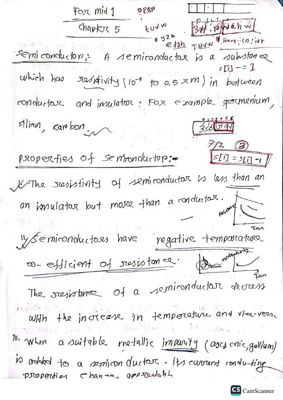 For mid 1
Chapter 5
tuvw
Semiconductor:- A semiconductor is a substance
s[i] -= 1
which has resistivity (10⁻⁴ to 0.5 Ωm) in between
conductor and insulator. For example germenium,
silion, carbon
7/2 3
s[i] = s[i] - 1
properties of semiconductor:-
i) The resistivity of semiconductor is less than an
an insulator but more than a conductor.
ii) Semiconductors have negative temparature
co-efficient of resistance.
Tem
The resistance of a semiconductor decress
with the increase in temperature and vice-vers
iii. When a suitable metallic impurity (arsenic, gallium)
is added to a semiconductor. Its current conducting
properties change appreciably
CS CamScanner